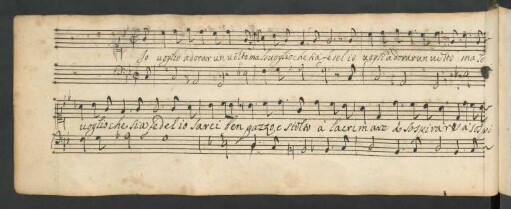 Io voglio adorar un volto ma lo voglio che sia fedel io vogli'adorar un volto ma lo
voglio che sia fedel io sarei ben pazzo, e stolto à lacrimare à sospirare à sospi